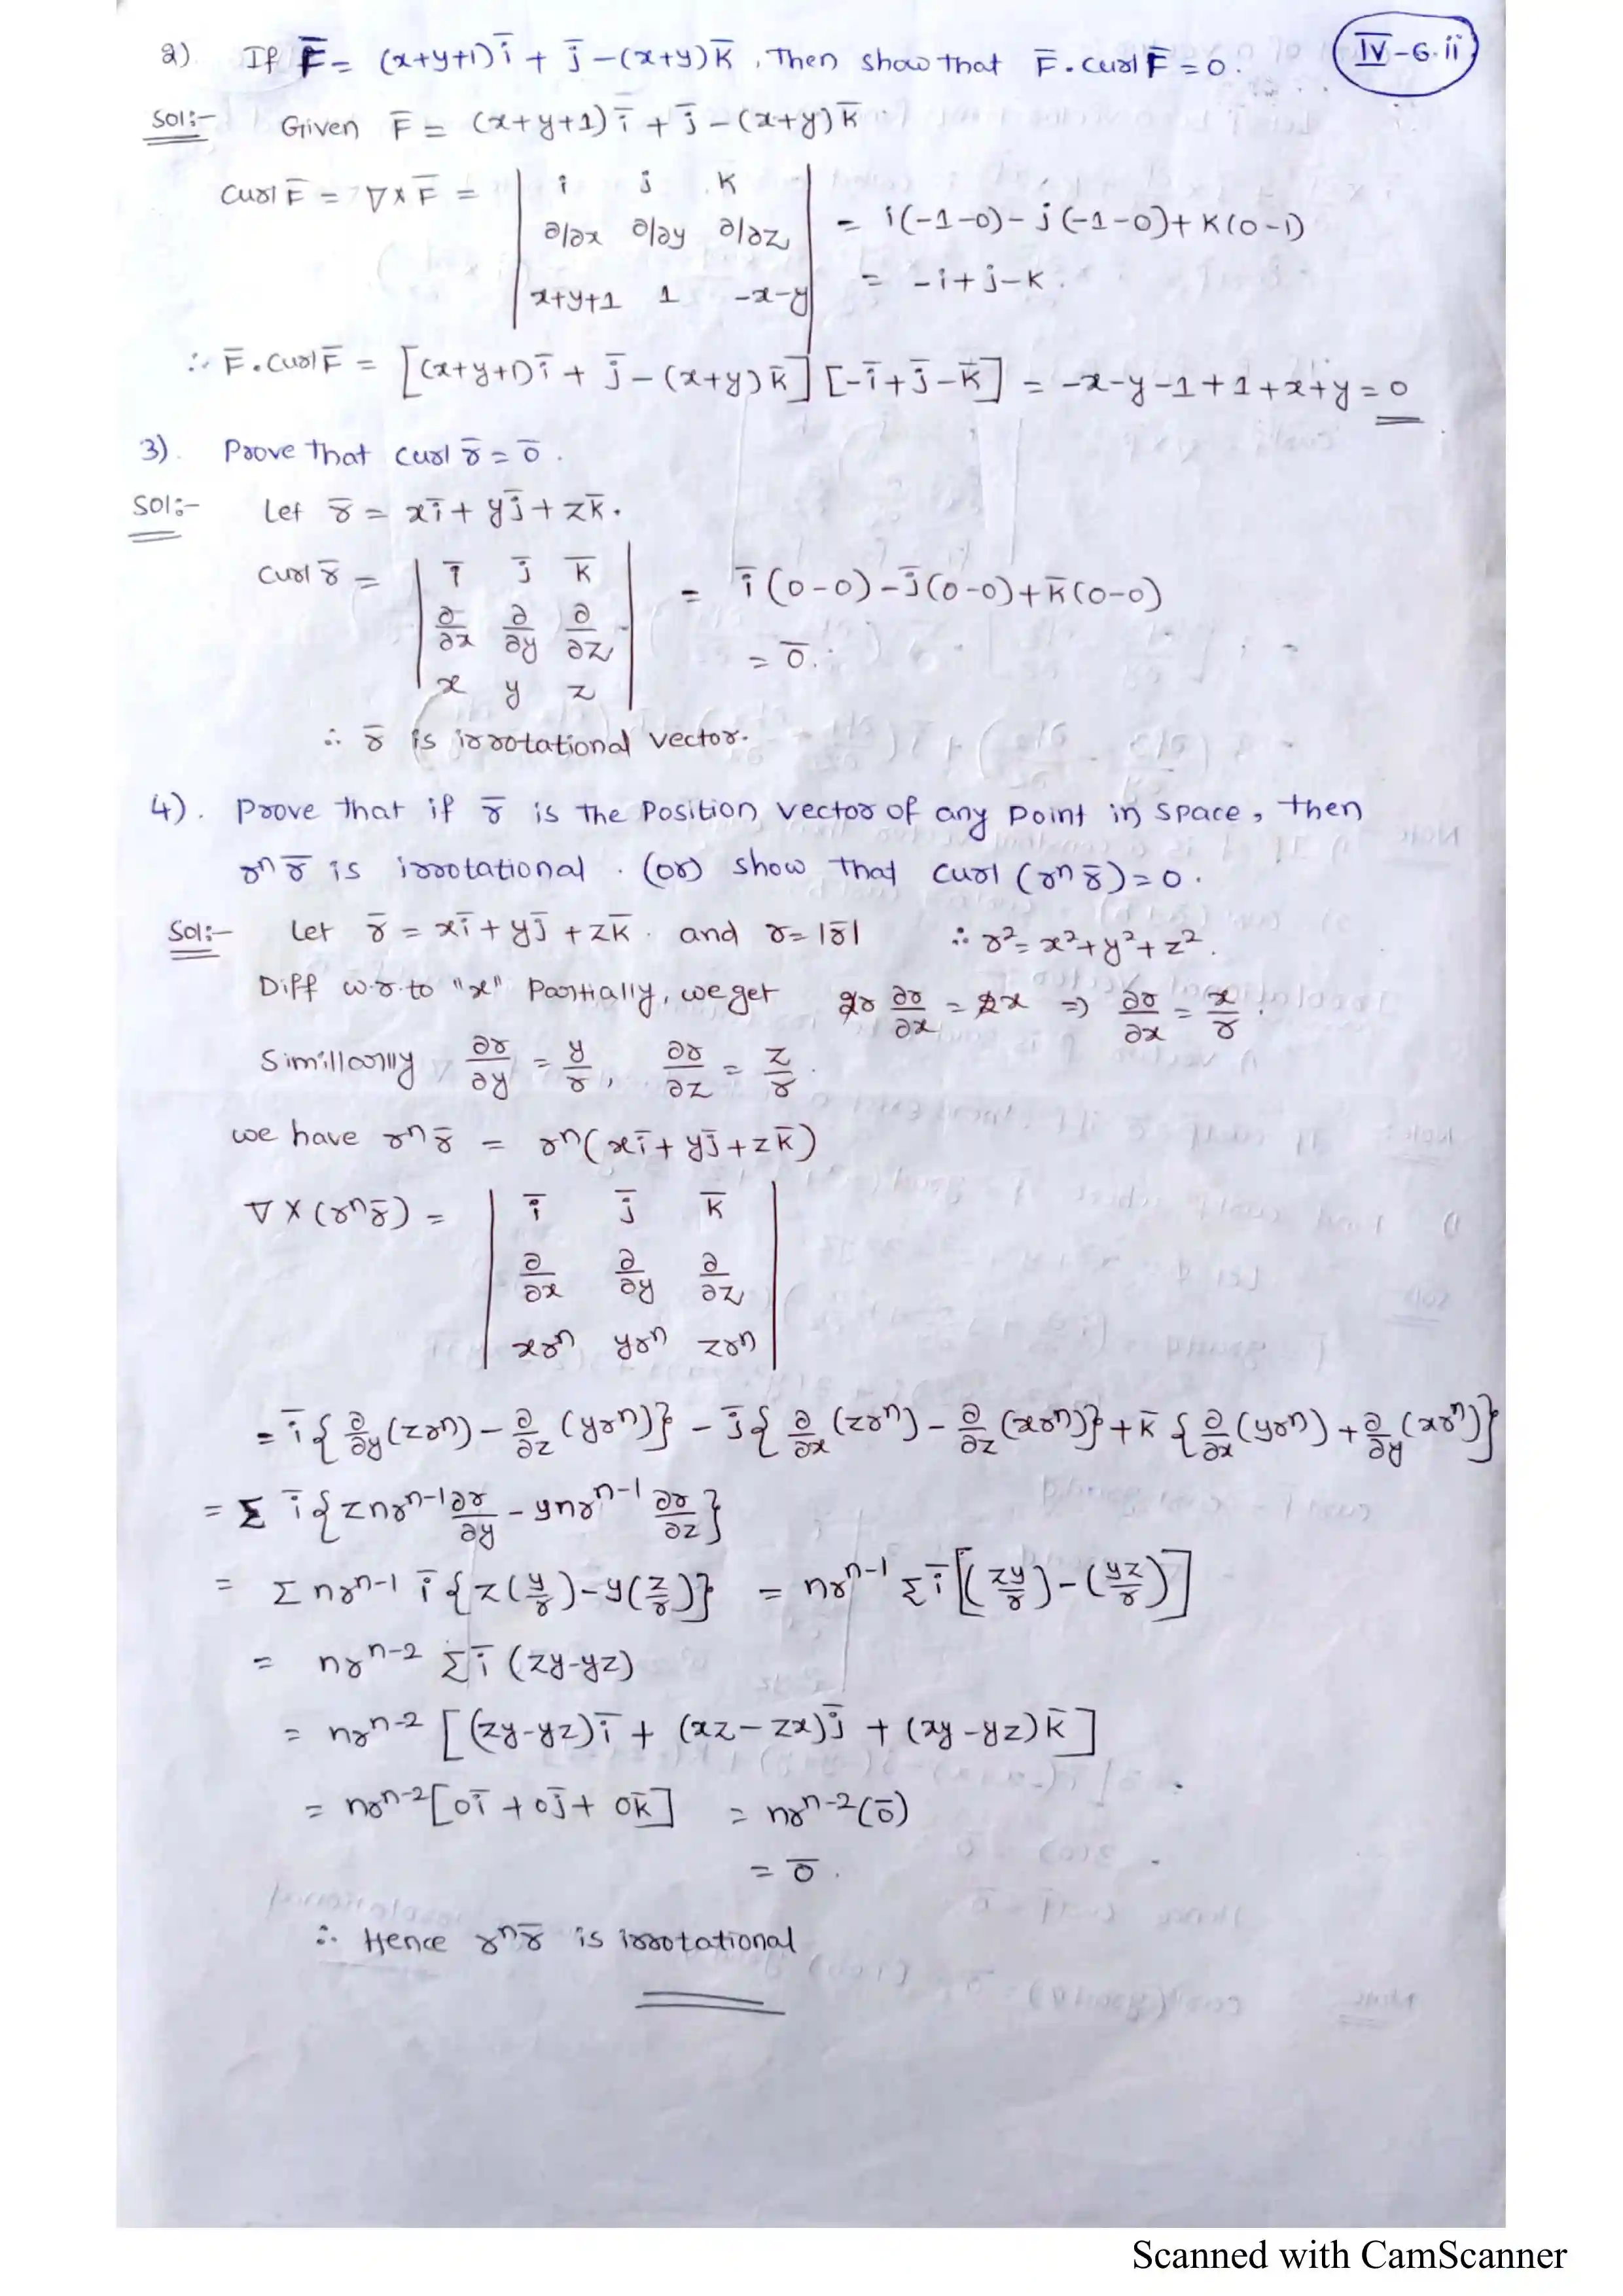 2). If F̅ = (x+y+1)i̅ + j̅ -(x+y)k̅, Then show that F̅.curl F̅ = 0. IV-6.ii
Sol:- Given F̅ = (x+y+1)i̅ + j̅ -(x+y)k̅
Curl F̅ = ∇×F̅ = | i j k |
| ∂/∂x ∂/∂y ∂/∂z | = i(-1-0)- j(-1-0)+ k(0-1)
| x+y+1 1 -x-y | = -i+j-k.
∴ F̅.Curl F̅ = [(x+y+1)i̅ + j̅ -(x+y)k̅] [-i̅+j̅-k̅] = -x-y-1+1+x+y = 0
3). Prove that curl r̅ = 0̅.
Sol:- Let r̅ = xi̅ + yj̅ + zk̅.
Curl r̅ = | i̅ j̅ k̅ | = i̅(0-0)-j̅(0-0)+k̅(0-0)
| ∂/∂x ∂/∂y ∂/∂z | = 0̅.
| x y z |
∴ r̅ is irrotational vector.
4). Prove that if r̅ is the Position vector of any Point in space, then
rⁿr̅ is irrotational. (or) show that curl (rⁿr̅)=0.
Sol:- Let r̅ = xi̅ + yj̅ + zk̅. and r=|r̅| ∴ r²= x²+y²+z².
Diff w.r.to "x" Partially, we get 2r ∂r/∂x = 2x ⇒ ∂r/∂x = x/r.
Simillarly ∂r/∂y = y/r, ∂r/∂z = z/r.
we have rⁿr̅ = rⁿ(xi̅ + yj̅ + zk̅)
∇×(rⁿr̅) = | i̅ j̅ k̅ |
| ∂/∂x ∂/∂y ∂/∂z |
| xrⁿ yrⁿ zrⁿ |
= i̅{∂/∂y(zrⁿ)-∂/∂z(yrⁿ)} - j̅{∂/∂x(zrⁿ)-∂/∂z(xrⁿ)}+k̅{∂/∂x(yrⁿ)+∂/∂y(xrⁿ)}
= Σ i̅{znrⁿ⁻¹∂r/∂y - ynrⁿ⁻¹ ∂r/∂z}
= Σ nrⁿ⁻¹ i̅{z(y/r)-y(z/r)} = nrⁿ⁻¹ Σi̅[(zy/r)-(yz/r)]
= nrⁿ⁻² Σi̅ (zy-yz)
= nrⁿ⁻² [(zy-yz)i̅ + (xz-zx)j̅ + (xy-yz)k̅]
= nrⁿ⁻²[0i̅ + 0j̅ + 0k̅] = nrⁿ⁻²(0̅)
= 0̅.
∴ Hence rⁿr̅ is irrotational
Scanned with CamScanner